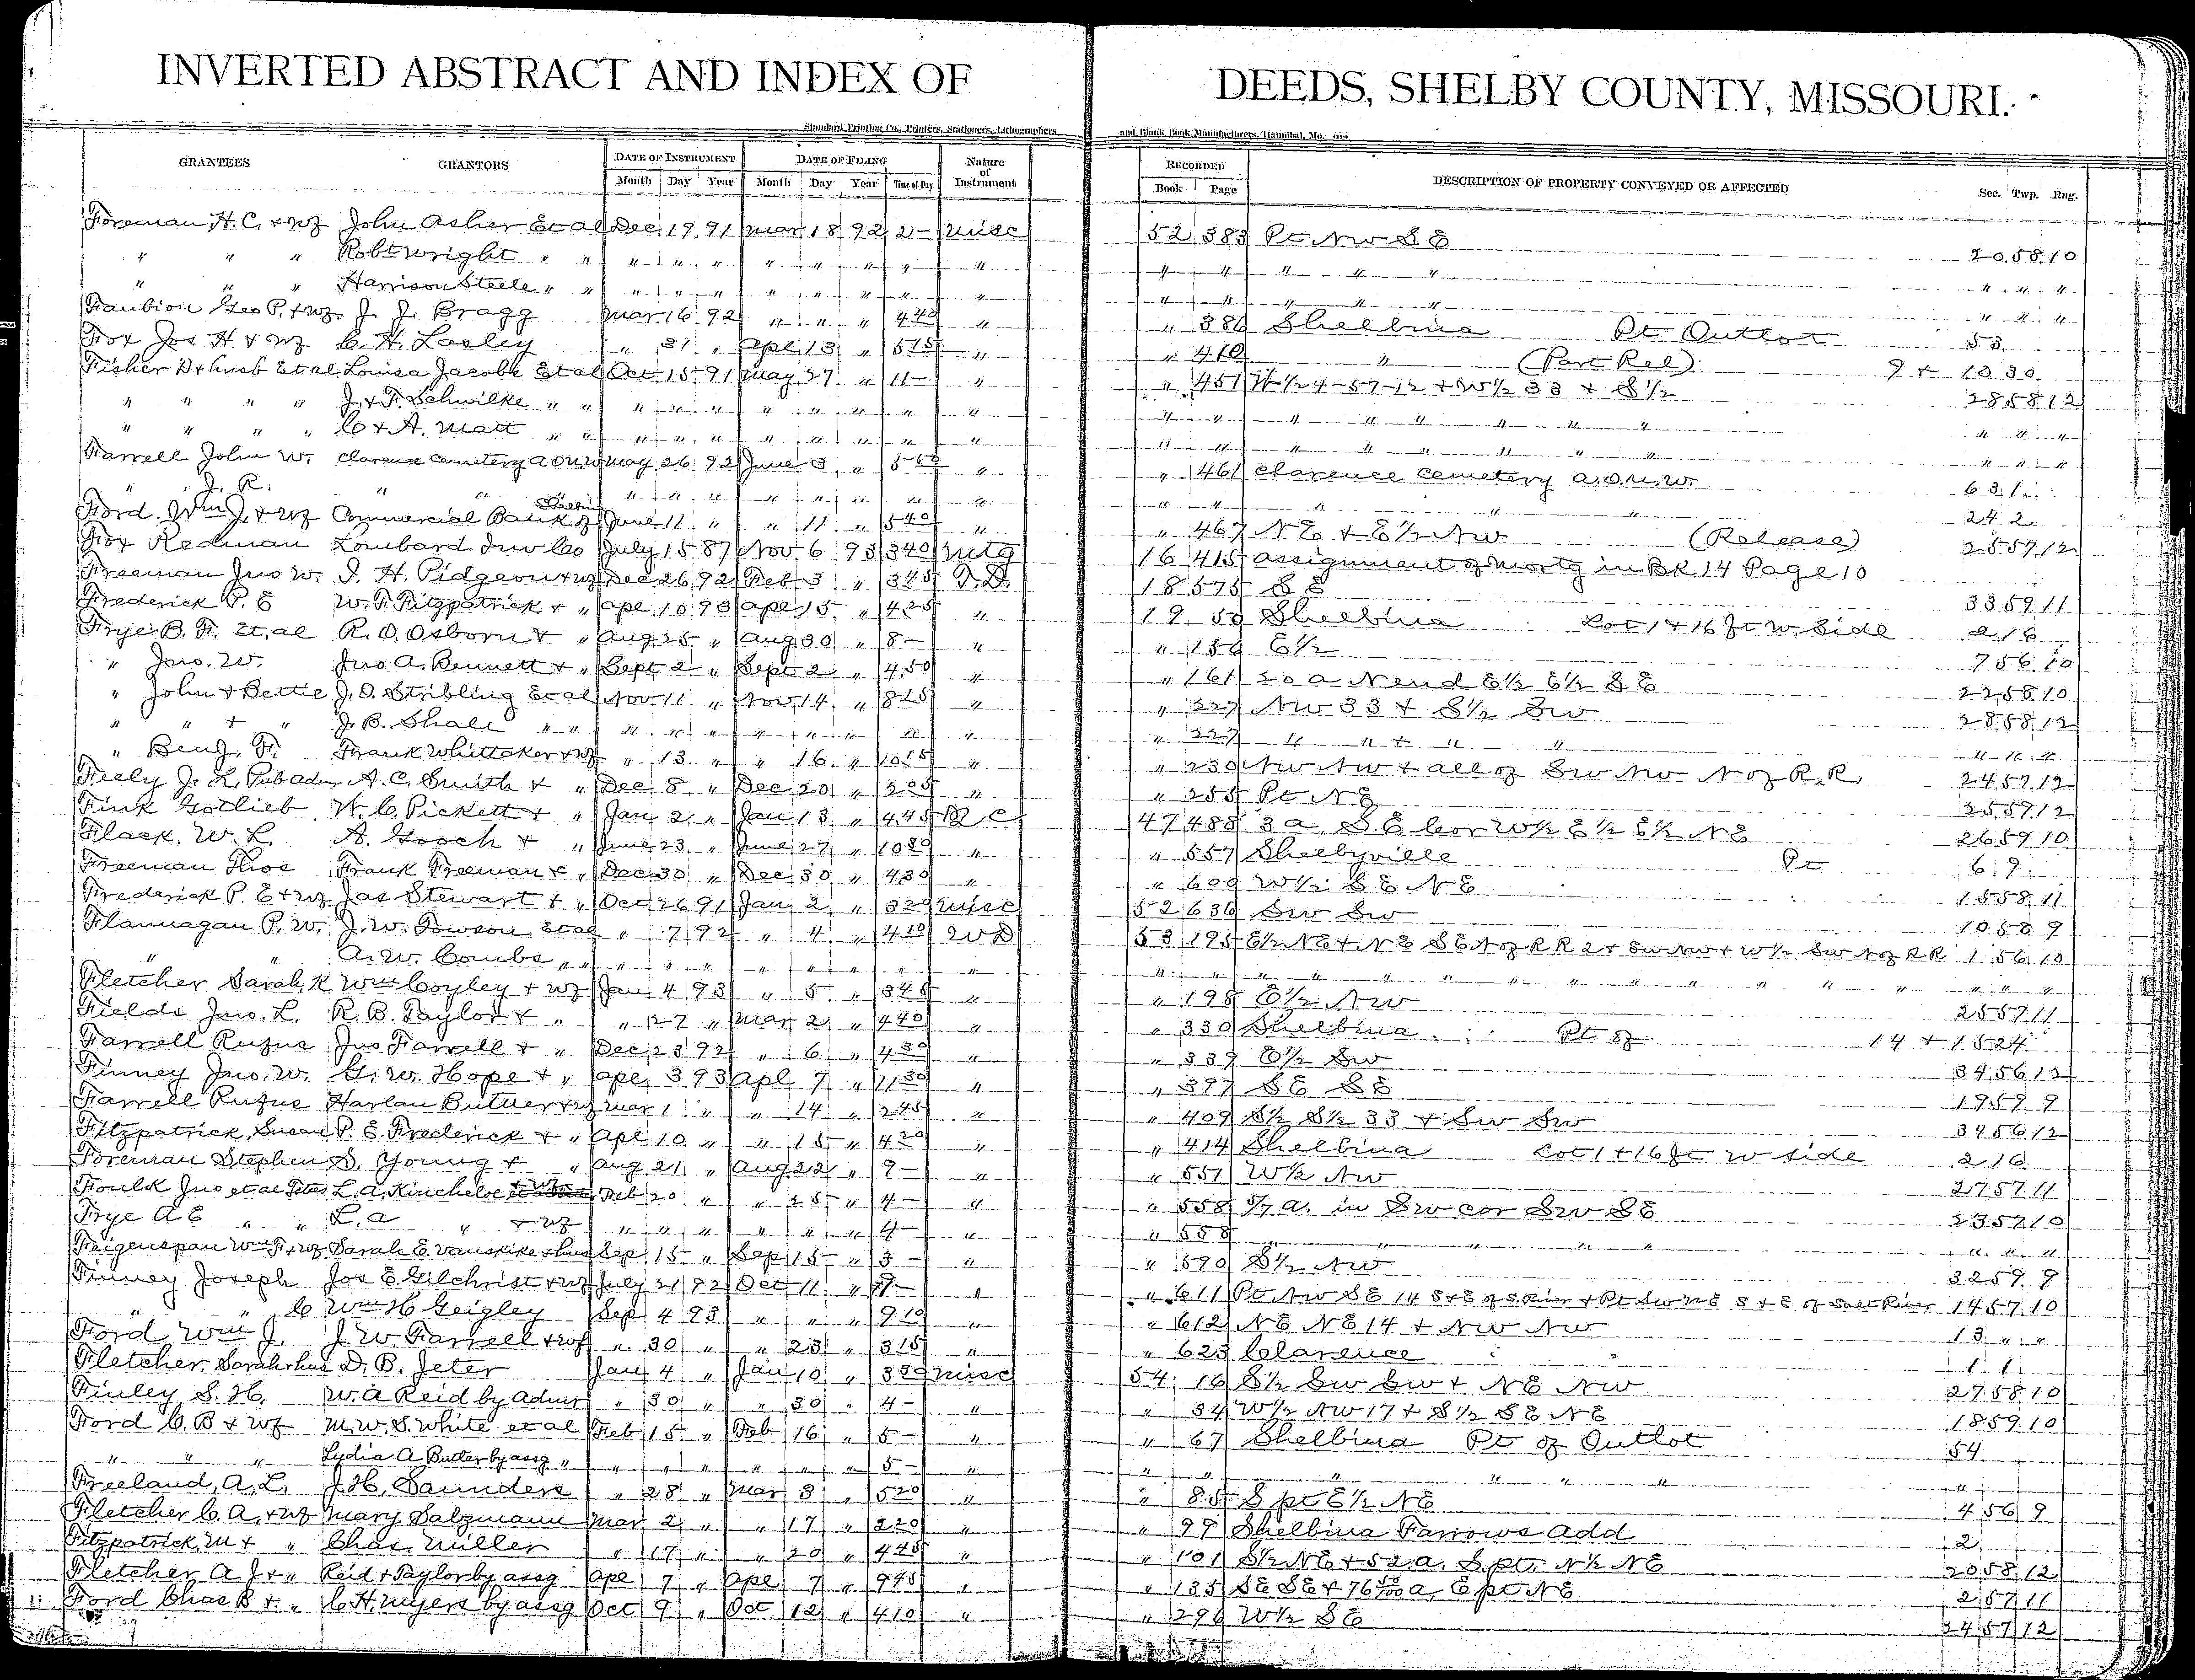 INVERTED ABSTRACT AND INDEX OF DEEDS, SHELBY COUNTY, MISSOURI.
Standard Printing Co., Printers, Stationers, Lithographers and Blank Book Manufacturers, Hannibal, Mo.
GRANTEES GRANTORS DATE OF INSTRUMENT DATE OF FILING Nature of Instrument RECORDED DESCRIPTION OF PROPERTY CONVEYED OR AFFECTED Sec. Twp. Rng.
Month Day Year Month Day Year Time of Day Book Page
Foreman H. C. + wf John Asher Et al Dec 19 91 Mar 18 92 2- Misc 52 383 Pt NW SE 20 58 10
" " " Robt Wright " " " " " " " " " " " " " " " " " " "
" " " Harrison Steele " " " " " " " " " " " " " " " " " " "
Faubion Geo P. + wf J. J. Bragg Mar 16 92 " " " 4 40 " " 386 Shelbina Pt Outlot 53
Fox Jos H + wf C. H. Lasley " 31 " Apl 13 " 5 15 " " 410 " (Part Rel) 9 + 10 30
Fisher D + husb Et al Louisa Jacobs Et al Oct 15 91 May 27 " 11- " " 451 W 1/2 4-57-12 + W 1/2 33 + S 1/2 28 58 12
" " " " J. + F. Schwilke " " " " " " " " " " " " " " " " " " " " "
" " " " C + A. Matt " " " " " " " " " " " " " " " " " " " " "
Farrell John W. Clarence Cemetery A O U W May 26 92 June 3 " 5 50 " " 461 Clarence Cemetery A. O. U. W. 63 1
" J. R. " " " " " " " " " " " " " " " 24 2
Ford Wm J. + wf Commercial Bank of Shelbina June 11 " " 11 " 5 40 " " 467 NE + E 1/2 NW (Release) 25 57 12
Fox Redman Lombard Inv Co July 15 87 Nov 6 93 3 40 Mtg 16 415 assignment of Mortg in BK 14 Page 10
Freeman Jno W. I. H. Pidgeon + wf Dec 26 92 Feb 3 " 3 45 T. D. 18 575 SE 33 59 11
Frederick P. E W. F. Fitzpatrick + " Apl 10 93 Apl 15 " 4 25 " 19 50 Shelbina Lot 1 + 16 ft W. Side 2 16
Frye B. F. Et. al R. O. Osborn + " Aug 25 " Aug 30 " 8- " " 156 E 1/2 7 56 10
" Jno. W. Jno A. Bennett + " Sept 2 " Sept 2 " 4 50 " " 161 20 a N end E 1/2 E 1/2 SE 22 58 10
" John + Bettie J. D. Stribling Et al Nov 11 " Nov 14 " 8 15 " " 227 NW 33 + S 1/2 SW 28 58 12
" " + " J. B. Shale " " " " " " " " " " " 227 " " + " " " " "
" Benj. F. Frank Whittaker + wf " 13 " " 16 " 10 15 " " 230 NW NW + all of SW NW N of R. R. 24 57 12
Feely J. L. Pub Admr A. C. Smith + " Dec 8 " Dec 20 " 2 05 " " 255 Pt NE 25 57 12
Fink Gotlieb W. C. Pickett + " Jan 2 " Jan 13 " 4 45 Q C 47 488 3 a. SE Cor W 1/2 E 1/2 E 1/2 NE 26 59 10
Flack, W. L. A. Gooch + " June 23 " June 27 " 10 30 " " 557 Shelbyville Pt 6 9
Freeman Thos Frank Freeman + " Dec 30 " Dec 30 " 4 30 " " 609 W 1/2 SE NE 15 58 11
Frederick P. E + wf Jas Stewart + " Oct 26 91 Jan 2 " 3 20 Misc 52 636 SW SW 10 58 9
Flannagan P. W. J. W. Towson Et al " 7 92 " 4 " 4 10 W D 53 195 E 1/2 NE + NE SE N of R R 2 + SW NW + W 1/2 SW N of R R 1 56 10
" " A. W. Combs " " " " " " " " " " " " " " " " " " " " " " " "
Fletcher Sarah K Wm Coyley + wf Jan 4 93 " 5 " 3 45 " " 198 E 1/2 NW 25 57 11
Fields Jno. L. R. B. Taylor + " " 27 " Mar 2 " 4 40 " " 330 Shelbina Pt of 14 + 15 24
Farrell Rufus Jno Farrell + " Dec 23 92 " 6 " 4 30 " " 339 E 1/2 SW 34 56 12
Finney Jno. W. G. W. Hope + " Apl 3 93 Apl 7 " 11 30 " " 397 SE SE 19 59 9
Farrell Rufus Harlan Butner + wf Mar 1 " " 14 " 2 45 " " 409 S 1/2 S 1/2 33 + SW SW 34 56 12
Fitzpatrick, Susan P. E. Frederick + " Apl 10 " " 15 " 4 20 " " 414 Shelbina Lot 1 + 16 ft W side 2 16
Foreman Stephen S. Young + " Aug 21 " Aug 22 " 9- " " 551 W 1/2 NW 27 57 11
Foulk Jno et al L. A. Kincheloe + wf Feb 20 " " 25 " 4- " " 558 5/7 a. in SW cor SW SE 23 57 10
Frye A E " " L. a " + wf " " " " " " 4- " " 558 " " " " " " "
Feigenspan Wm F + wf Sarah E. Vanskike + hus Sep 15 " Sep 15 " 3- " " 590 S 1/2 NW 32 59 9
Finney Joseph Jos E. Gilchrist + wf July 21 92 Oct 11 " 9- " " 611 Pt NW SE 14 S + E of S. River + Pt SW NE S + E of Salt River 14 57 10
" " C Wm H Geigley Sep 4 93 " " " 9 10 " " 612 NE NE 14 + NW NW 13 " "
Ford, Wm J. J. W. Farrell + wf " 30 " " 23 " 3 15 " " 623 Clarence 1 1
Fletcher, Sarah + hus D. B. Jeter Jan 4 " Jan 10 " 3 30 Misc 54 16 S 1/2 SW SW + NE NW 27 58 10
Finley S. H. W. A Reid by Admr " 30 " " 30 " 4- " " 34 W 1/2 NW 17 + S 1/2 SE NE 18 59 10
Ford C. B + wf M. W. S. White et al Feb 15 " Feb 16 " 5- " " 67 Shelbina Pt of Outlot 54
" " " Lydia A Butler by assg " " " " " " " 5- " " " " " " "
Freeland, A. L. J. H. Saunders " 28 " Mar 3 " 5 20 " " 85 S pt E 1/2 NE 4 56 9
Fletcher C. A. + wf Mary Salzmann Mar 2 " " 17 " 2 20 " " 99 Shelbina Farrows Add 2
Fitzpatrick, M + " Chas. Miller " 17 " " 20 " 4 45 " " 101 S 1/2 NE + 52 a. S. pt. N 1/2 NE 20 58 12
Fletcher A J + " Reid + Taylor by assg Apl 7 " Apl 7 " 9 45 " " 135 SE SE + 76 50/100 a. E pt NE 2 57 11
Ford Chas B + " C. H. Myers by assg Oct 9 " Oct 12 " 4 10 " " 296 W 1/2 SE 24 57 12